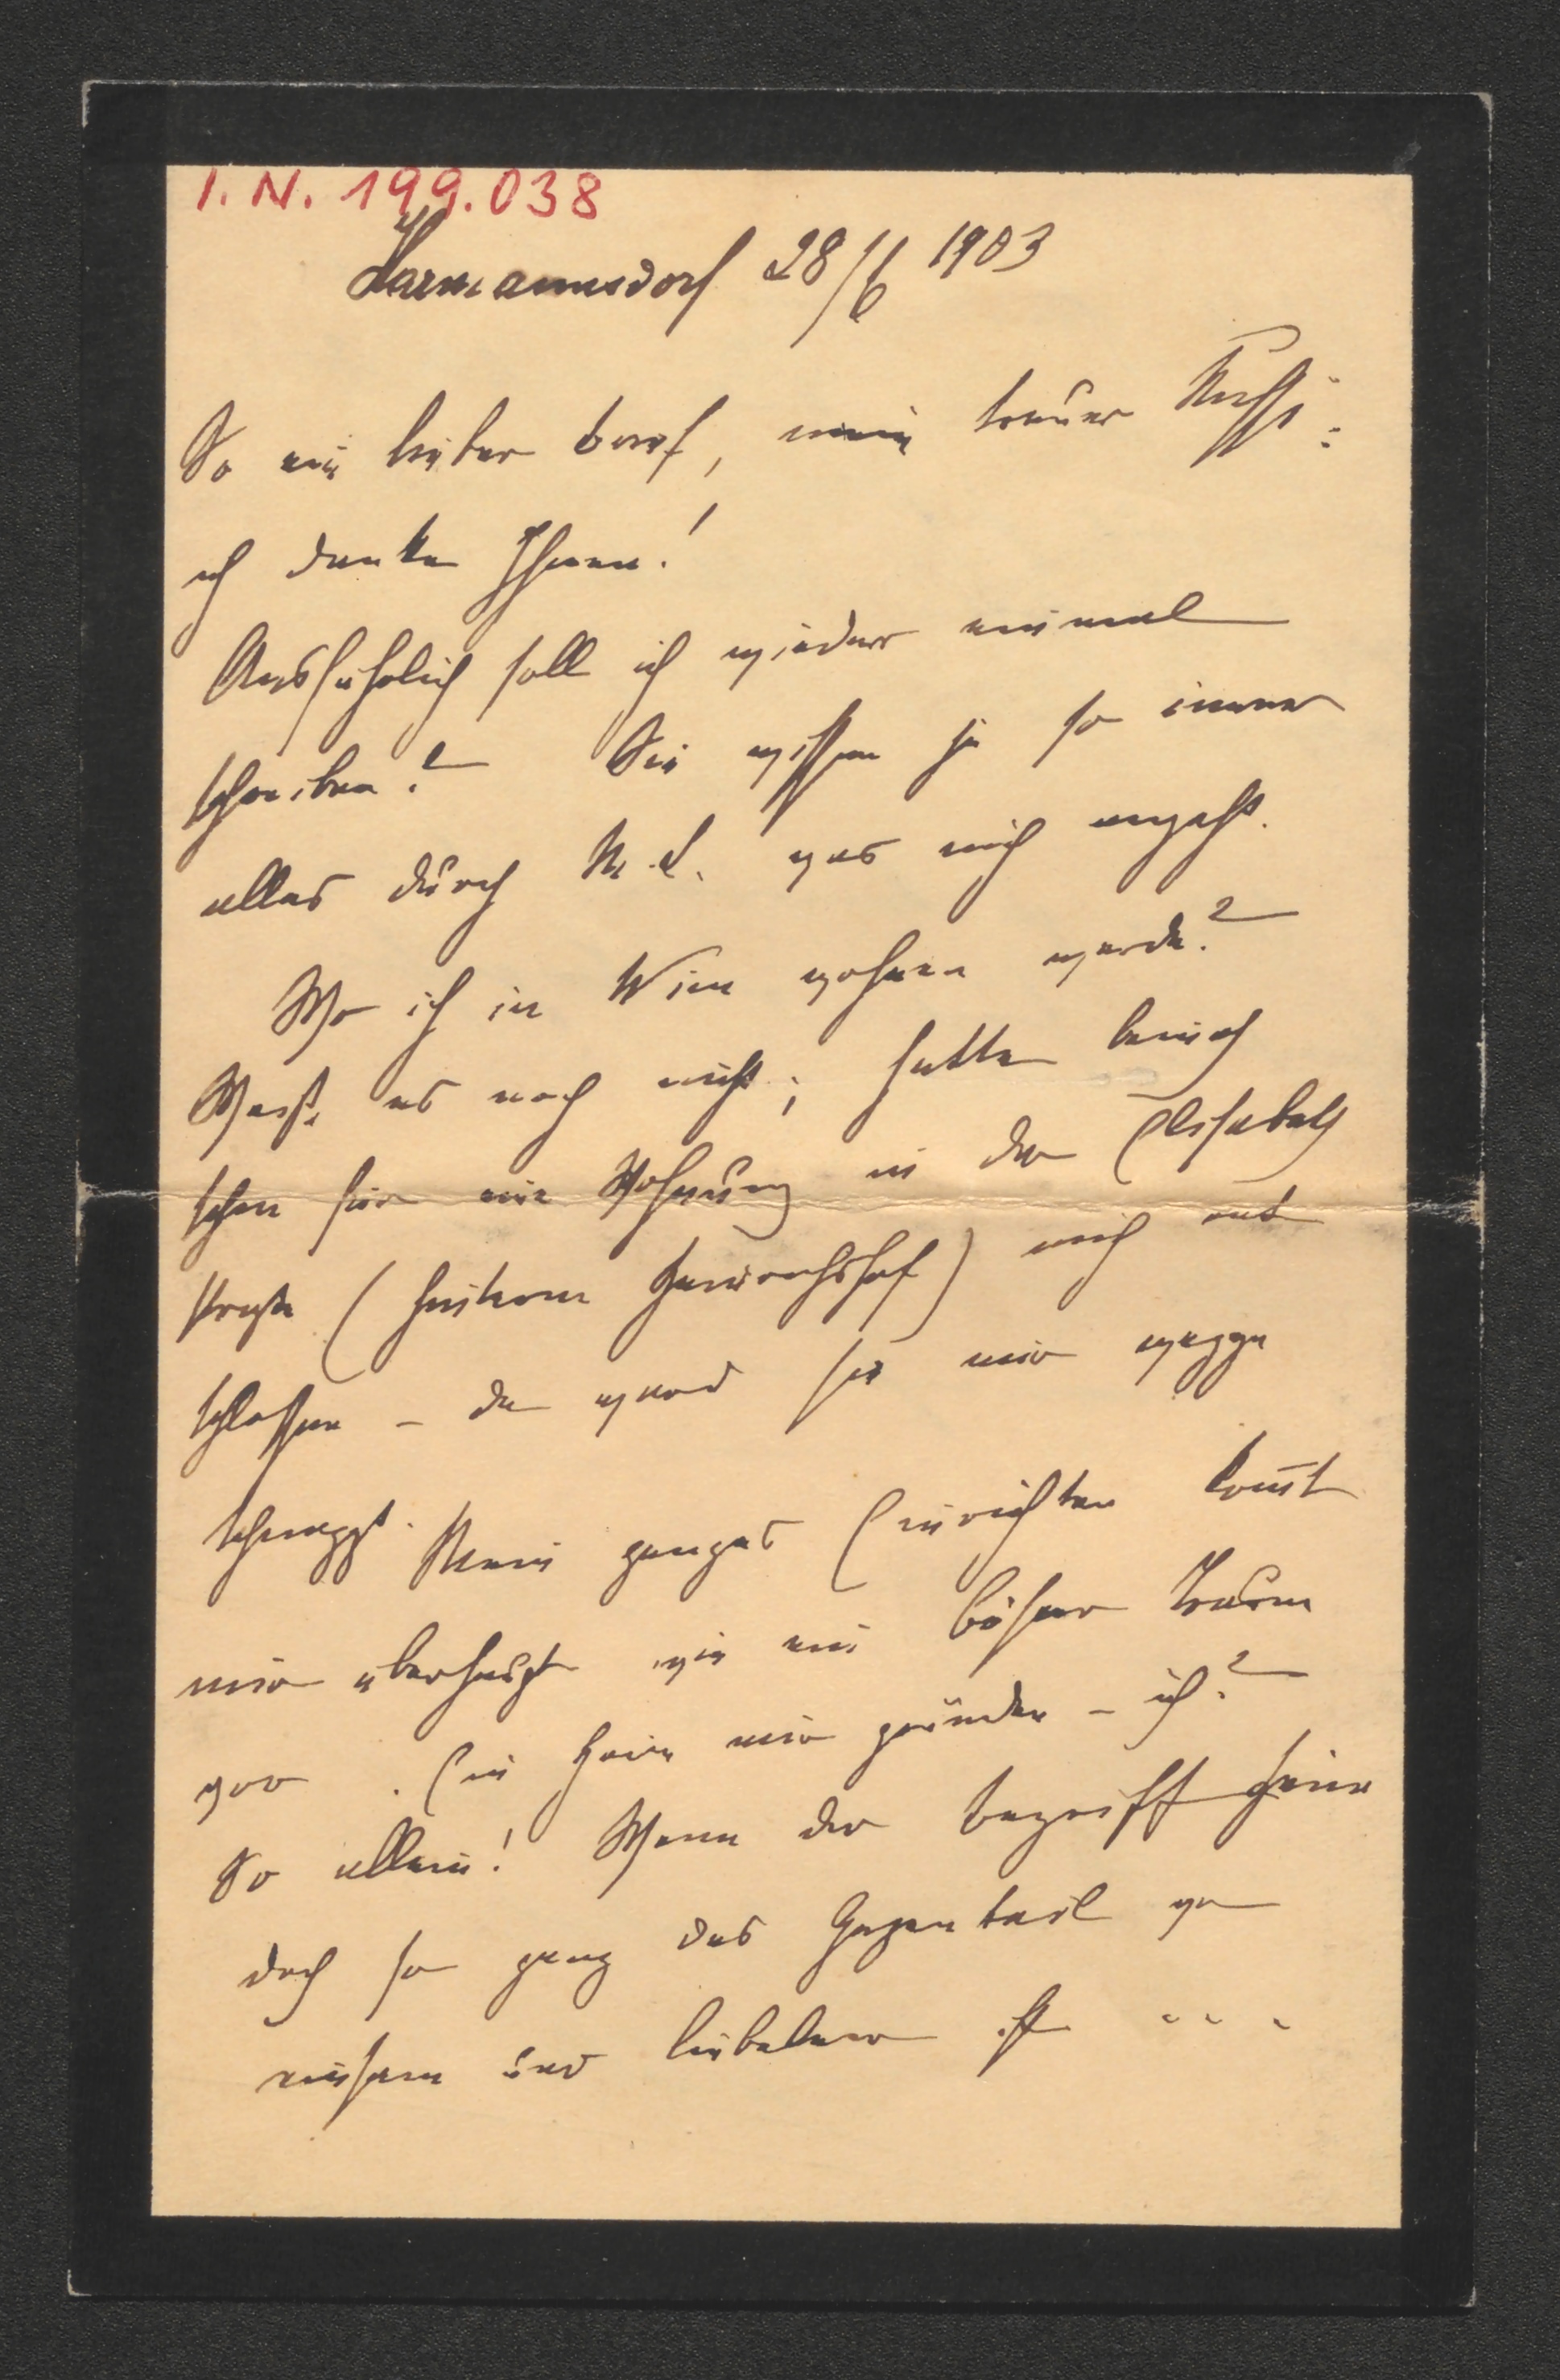 I.N. 199.038
Harmannsdorf 28/6 1903
So ein lieber Brief, mein treuer
ich danke Ihnen!
Ausführlich soll ich wieder einmal
schreiben? Sie wissen ja so immer
alles durch M. L. was mich angeht.
Wo ich in Wien wohnen werde?
Weiß es noch nicht; hatte beinah
schon für eine Wohnung in der Elisabeth
straße (hinterm Heinrichshof) mich ent
schlossen – da ward sie mir wegge
schnappt. Mein ganzes Einrichten komt
mir überhaupt wie ein böser Traum
vor. Ein Heim mir gründen – ich?
So allein! Wenn der Begriff Heim
doch so ganz das Gegenteil von
einsam und liebeleer ist . . .